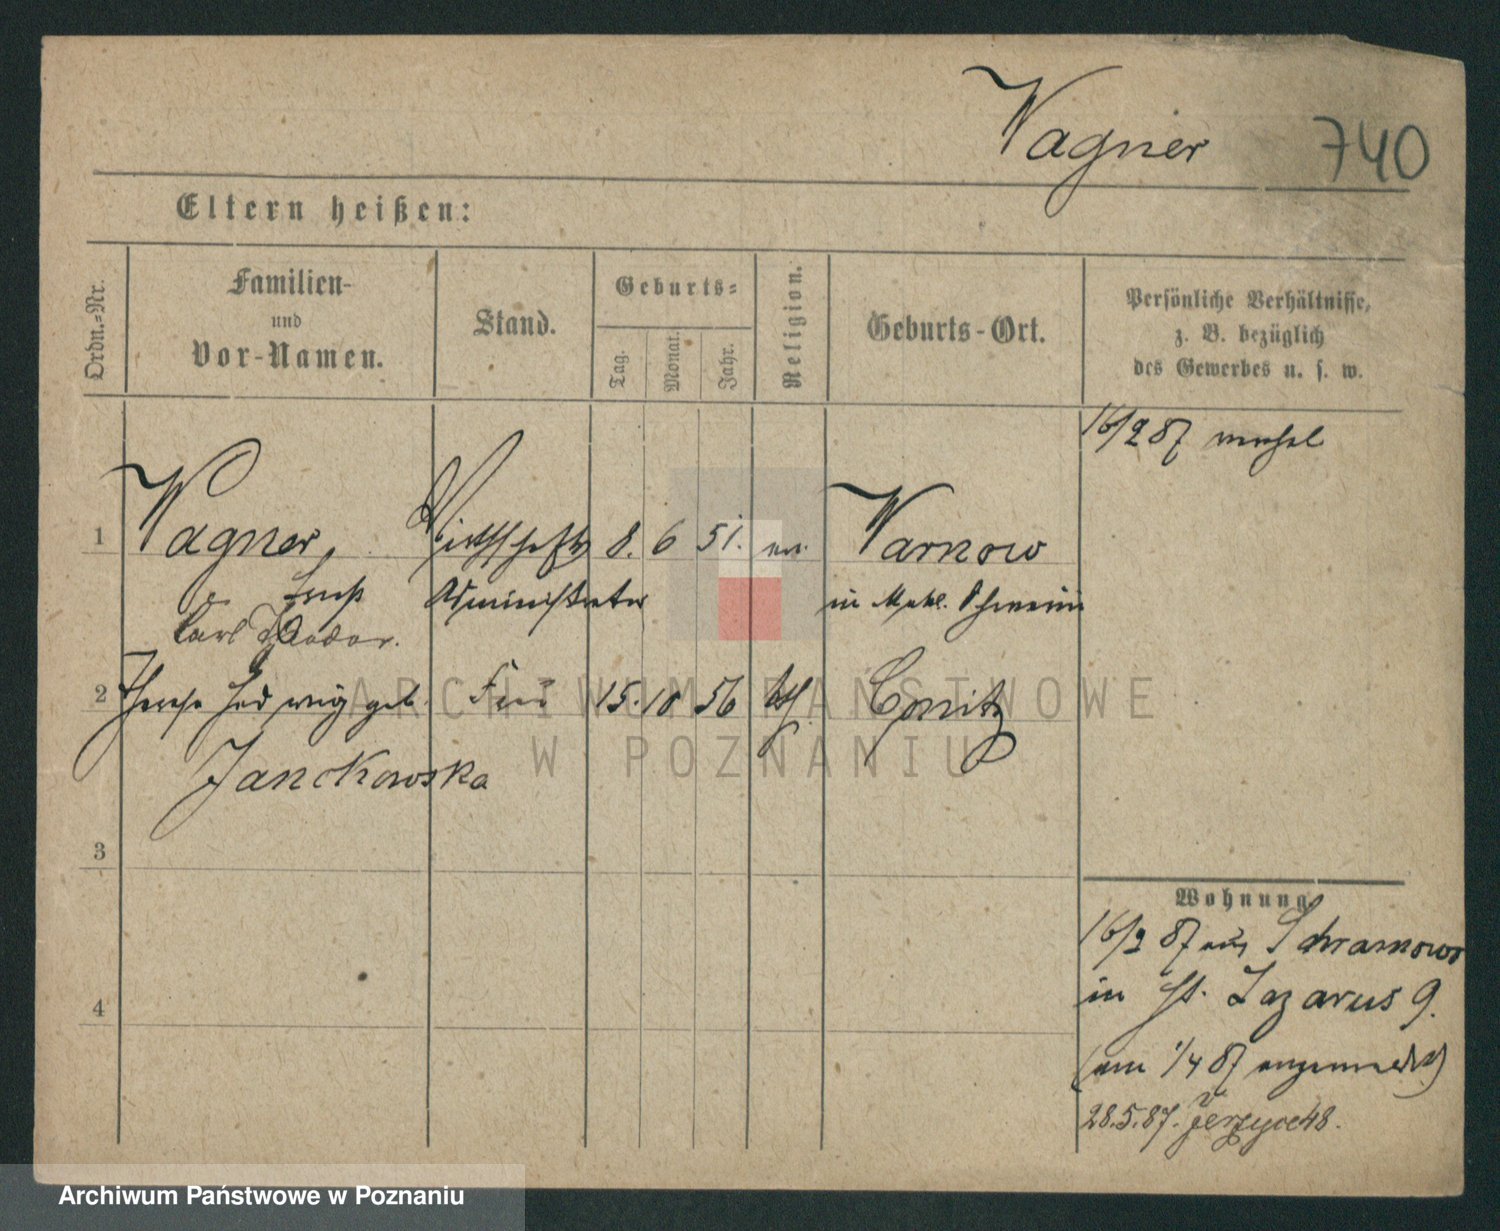 Wagner 740
Eltern heißen:
Ordn.=Nr.
Familien-
und
Vor-Namen.
Stand.
Geburts=
Tag.
Monat.
Jahr.
Religion.
Geburts-Ort.
Persönliche Verhältnisse,
z. B. bezüglich
des Gewerbes u. s. w.
16/2 87
1 Wagner, Wirthschafts 8. 6 51. ev. Warnow
Ernst Administrator in Mekl. Schwerin
Carl Theodor.
2 Therese Hedwig geb. Frau 15. 10 56 kth Conitz
Janckowska
3
4
Wohnung
16/2 87 aus Schramowo
in St. Lazarus 9.
(am 1/4 87 angemeldet)
28.5.87. Jerzyce 48.
ARCHIWUM PAŃSTWOWE
W POZNANIU
Archiwum Państwowe w Poznaniu